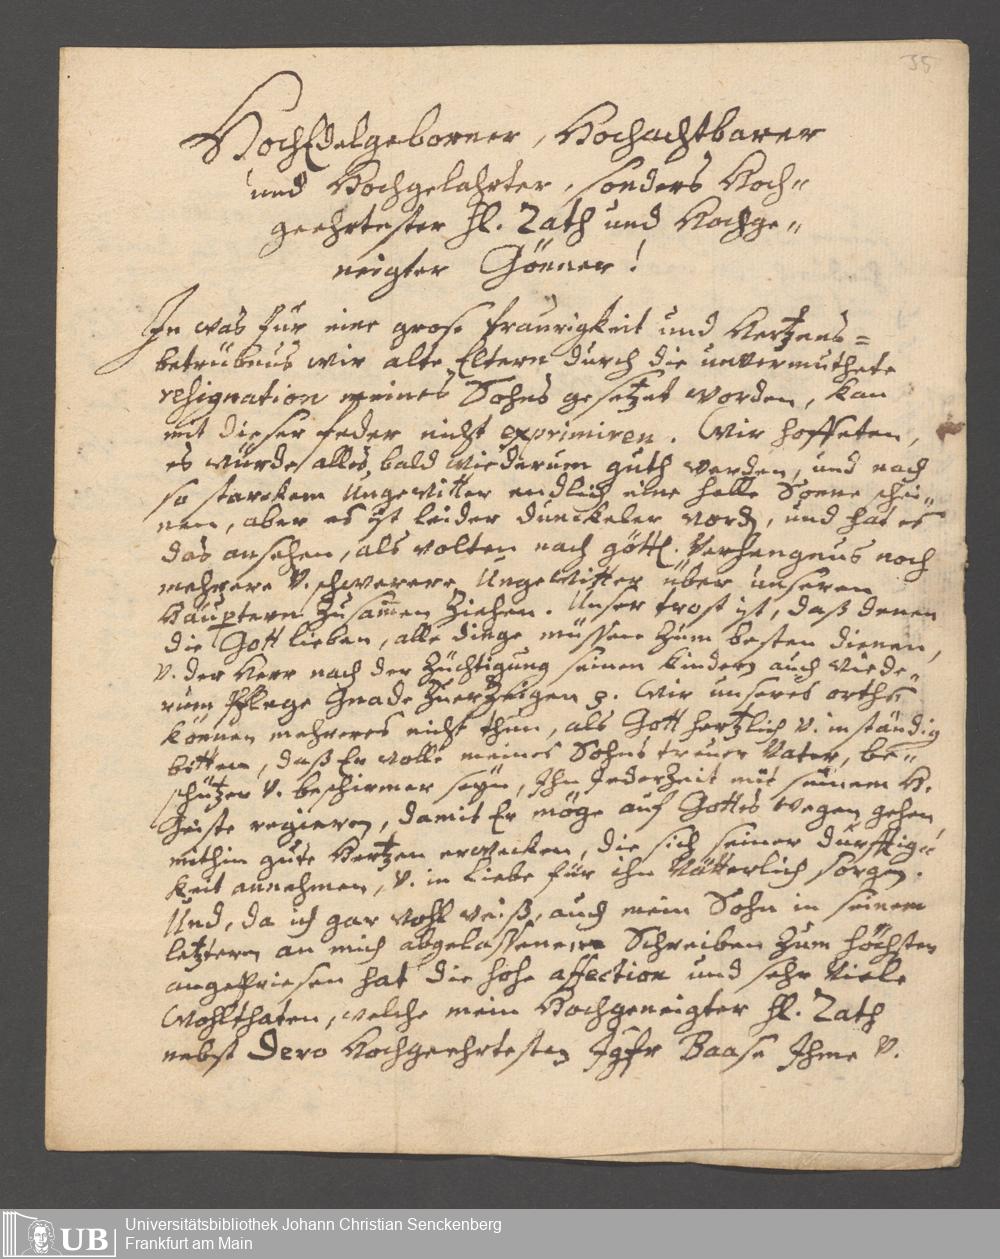 35
HochEdelgeborner, Hochachtbarer
und Hochgelahrter, sonders Hoch-
geehrtester H. Rath und Hochge-
neigter Gönner!
In was für eine grose Traurigkeit und Hertzens-
betrübnus wir alte Eltern durch die unvermuthete
resignation meines Sohns gesetzet worden, kan
mit dieser feder nicht exprimiren. Wir hoffeten,
es würde alles bald wiederum guth werden, und nach
so starckem Ungewitter endlich eine helle Sonne schei-
nen, aber es ist leider dunckeler word, und hat es
das ansehen, als wolten nach göttl. Verhengnus noch
mehrere v. schwerere Ungewitter über unseren
Häuptern zusammen ziehen. Unser trost ist, daß denen
die Gott lieben, alle dinge müssen zum besten dienen,
v. der Herr nach der Züchtigung seinen kindern auch wiede-
rum pflege Gnade zuerzeigen p. Wir unseres orths
können mehreres nicht thun, als Gott hertzlich v. inständig
bitten, daß Er wolle meines Sohns treuer Vater, be-
schützer v. beschirmer seyn, Ihn Jederzeit mit seinem H.
Geiste regieren, damit Er möge auf Gottes wegen gehen,
mithin gute Hertzen erwecken, die sich seiner durfftig-
keit annehmen, v. in Liebe für ihn Vätterlich sorgen.
Und, da ich gar wohl weiß, auch mein Sohn in seinem
letztern an mich abgelassenen Schreiben zum höchsten
angepriesen hat die hohe affection und sehr viele
Wohlthaten, welche mein Hochgeneigter H. Rath
nebst Dero Hochgeehrtesten Jgfr Baase Ihme v.
Universitätsbibliothek Johann Christian Senckenberg
Frankfurt am Main
UB